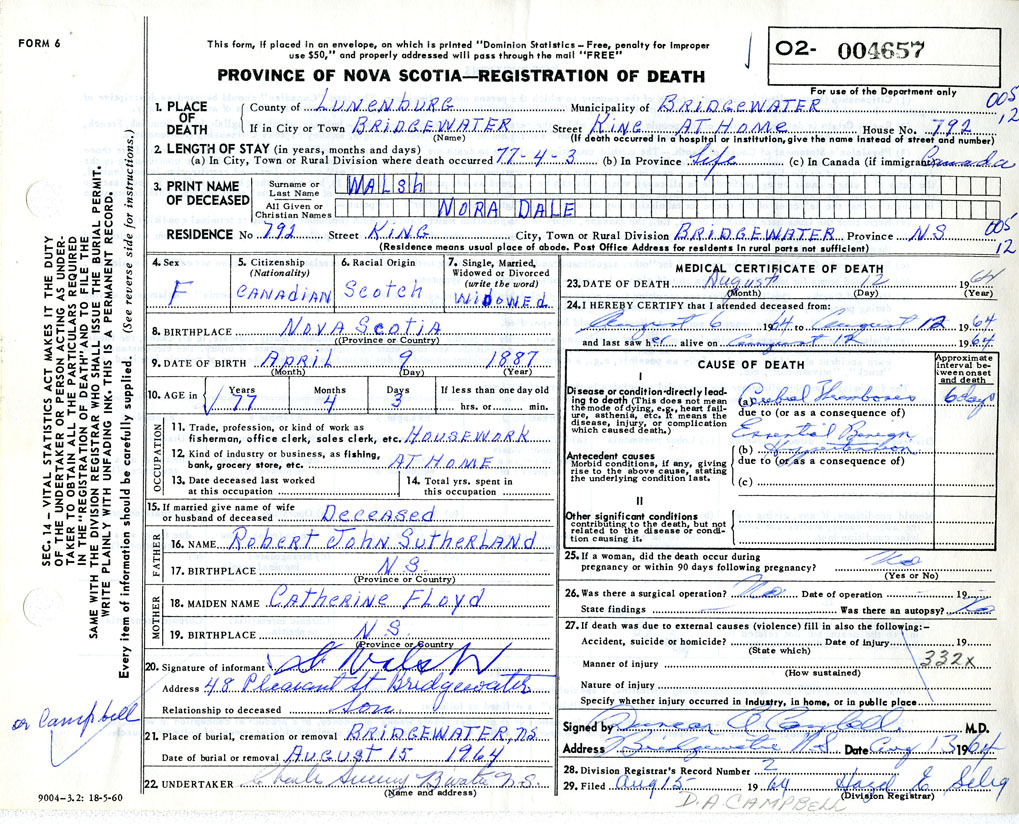 FORM 6
This form, if placed in an envelope, on which is printed "Dominion Statistics – Free, penalty for improper
use $50," and properly addressed will pass through the mail "FREE"
PROVINCE OF NOVA SCOTIA—REGISTRATION OF DEATH
02- 004657
For use of the Department only
005
12
1. PLACE OF DEATH
County of LUNENBURG Municipality of BRIDGEWATER
If in City or Town BRIDGEWATER Street KING AT HOME House No. 792
(Name) (If death occurred in a hospital or institution, give the name instead of street and number)
2. LENGTH OF STAY (in years, months and days)
(a) In City, Town or Rural Division where death occurred 77-4-3 (b) In Province Life (c) In Canada (if immigrant) Canada
3. PRINT NAME OF DECEASED
Surname or Last Name WALSh
All Given or Christian Names NORA DALE
RESIDENCE No 792 Street KING City, Town or Rural Division BRIDGEWATER Province NS
005
12
(Residence means usual place of abode. Post Office Address for residents in rural parts not sufficient)
4. Sex
F
5. Citizenship (Nationality)
CANADIAN
6. Racial Origin
Scotch
7. Single, Married, Widowed or Divorced (write the word)
WIDOWED
8. BIRTHPLACE NOVA SCOTIA
(Province or Country)
9. DATE OF BIRTH APRIL 9 1887
(Month) (Day) (Year)
10. AGE in
Years Months Days If less than one day old
77 4 3 hrs. or min.
OCCUPATION
11. Trade, profession, or kind of work as
fisherman, office clerk, sales clerk, etc. HOUSEWORK
12. Kind of industry or business, as fishing,
bank, grocery store, etc. AT HOME
13. Date deceased last worked
at this occupation
14. Total yrs. spent in
this occupation
15. If married give name of wife
or husband of deceased DECEASED
FATHER
16. NAME ROBERT JOHN SUTHERLAND
17. BIRTHPLACE N.S.
(Province or Country)
MOTHER
18. MAIDEN NAME CATHERINE FLOYD
19. BIRTHPLACE N.S.
(Province or Country
20. Signature of informant Walsh
Address 48 Pleasant St Bridgewater
Relationship to deceased Son
21. Place of burial, cremation or removal BRIDGEWATER, NS
Date of burial or removal AUGUST 15 1964
22. UNDERTAKER B'water N.S.
(Name and address)
9004-3.2: 18-5-60
MEDICAL CERTIFICATE OF DEATH
23. DATE OF DEATH August 12 1964
(Month) (Day) (Year)
24. I HEREBY CERTIFY that I attended deceased from:
August 6 1964 to August 12 1964
and last saw her alive on August 12 1964
CAUSE OF DEATH
Approximate interval between onset and death
I
Disease or condition directly leading to death (This does not mean
the mode of dying, e.g., heart failure, asthenia, etc. It means the
disease, injury, or complication
which caused death.)
(a) Cerebral Thrombosis 6 days
due to (or as a consequence of)
Essential Benign
(b) Hypertension
due to (or as a consequence of)
(c)
Antecedent causes
Morbid conditions, if any, giving
rise to the above cause, stating
the underlying condition last.
II
Other significant conditions
contributing to the death, but not
related to the disease or condition causing it.
25. If a woman, did the death occur during
pregnancy or within 90 days following pregnancy? No
(Yes or No)
26. Was there a surgical operation? No Date of operation – 19
State findings – Was there an autopsy? No
27. If death was due to external causes (violence) fill in also the following:–
Accident, suicide or homicide? Date of injury 19
(State which)
332x
Manner of injury
(How sustained)
Nature of injury
Specify whether injury occurred in industry, in home, or in public place
Signed by Duncan A Campbell M.D.
Address Bridgewater N.S. Date Aug 13 1964
28. Division Registrar's Record Number 2
29. Filed Aug 15 1964 Hazel E Selig
(Division Registrar)
D.A. CAMPBELL
SEC. 14 – VITAL STATISTICS ACT MAKES IT THE DUTY
OF THE UNDERTAKER OR PERSON ACTING AS UNDERTAKER TO OBTAIN ALL THE PARTICULARS REQUIRED
IN THE "REGISTRATION OF DEATH" AND TO FILE THE
SAME WITH THE DIVISION REGISTRAR WHO SHALL ISSUE THE BURIAL PERMIT.
WRITE PLAINLY WITH UNFADING INK. THIS IS A PERMANENT RECORD.
Every item of information should be carefully supplied. (See reverse side for instructions.)
Dr Campbell